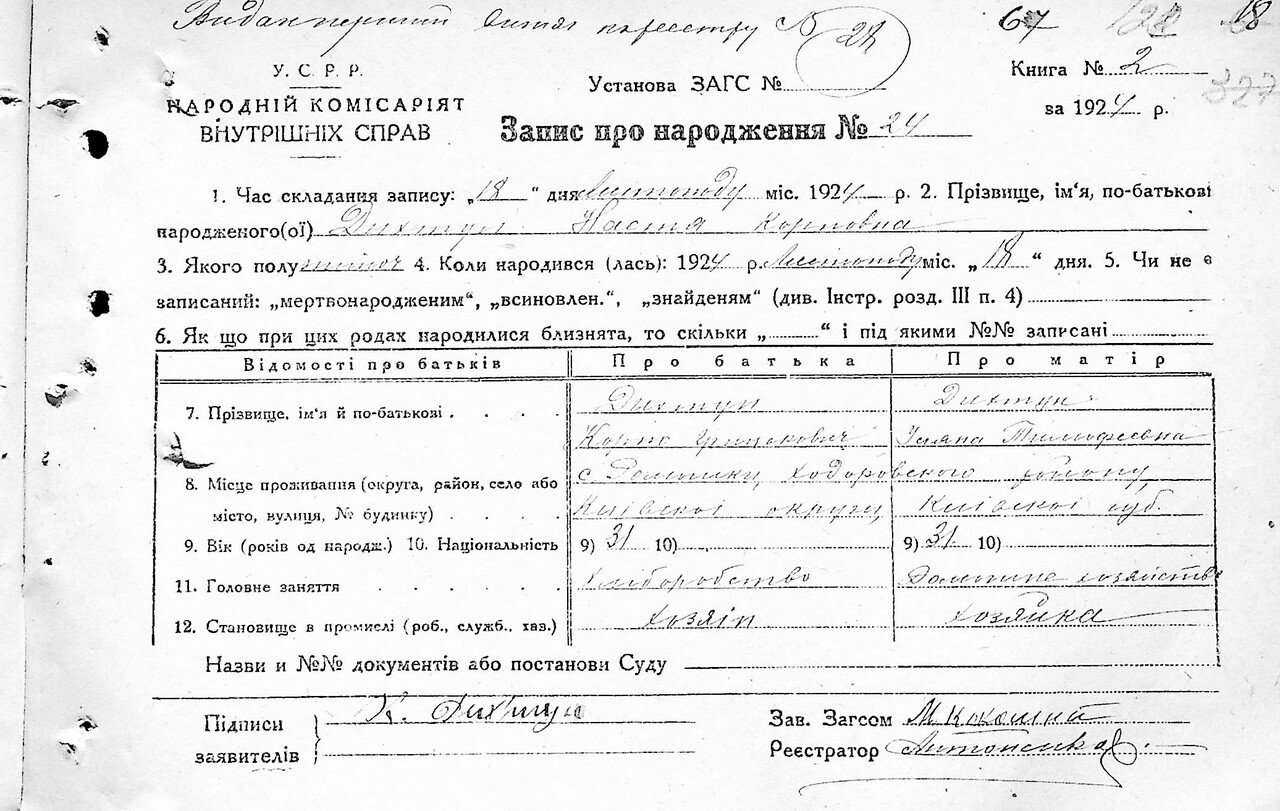 Видан перший витяг по реєстру № 24 67 122 18
У. С. Р. Р.
НАРОДНІЙ КОМІСАРІЯТ
ВНУТРІШНІХ СПРАВ
Установа ЗАГС №
Книга № 2
за 1924 р.
327
Запис про народження № 24
1. Час складання запису: „18“ дня Листопаду міс. 1924 р. 2. Прізвище, ім'я, по-батькові
народженого(ої) Дихтун Настя Корповна
3. Якого полу жіноч 4. Коли народився (лась): 1924 р. Листопаду міс. „18“ дня. 5. Чи не є
записаний: „мертвонародженим“, „всиновлен.“, „знайденям“ (див. Інстр. розд. III п. 4)
6. Як що при цих родах народилися близнята, то скільки „ “ і під якими №№ записані
Відомості про батьків Про батька Про матір
7. Прізвище, ім'я й по-батькові Дихтун Дихтун
Корпо Уляна Тимофеевна
8. Місце проживання (округа, район, село або с. Ходоровского району,
місто, вулиця, № будинку) Київскої округи, Київскої губ.
9. Вік (років од народж.) 10. Національність 9) 31 10) 9) 31 10)
11. Головне заняття Хліборобство Домашнє хозяйство
12. Становище в промислі (роб., служб., хаз.) хозяін хозяйка
Назви и №№ документів або постанови Суду
Підписи К. Дихтун
заявителів
Зав. Загсом М Кокоший
Реєстратор Антоненко